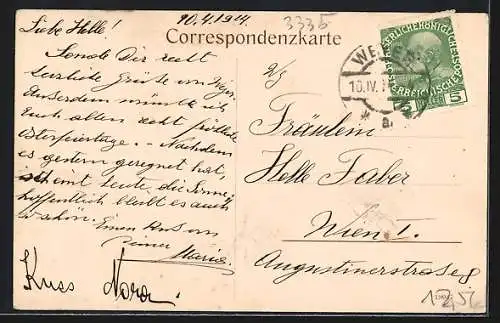 10.4.1914.
3335
Liebe Helle!
Correspondenzkarte
Sende Dir recht
herzliche Grüße von
Außerdem wünsche ich
Euch allen recht fröhliche
Osterfeiertage. – Nachdem
es gestern geregnet hat,
scheint heute die Sonne,
hoffentlich bleibt es auch
so schön.
Einen Kuss von
Deiner
Marie
Kuss Nora.
10.IV.
5 5
Fräulein
Helle Faber
Wien I.
Augustinerstrasse 8